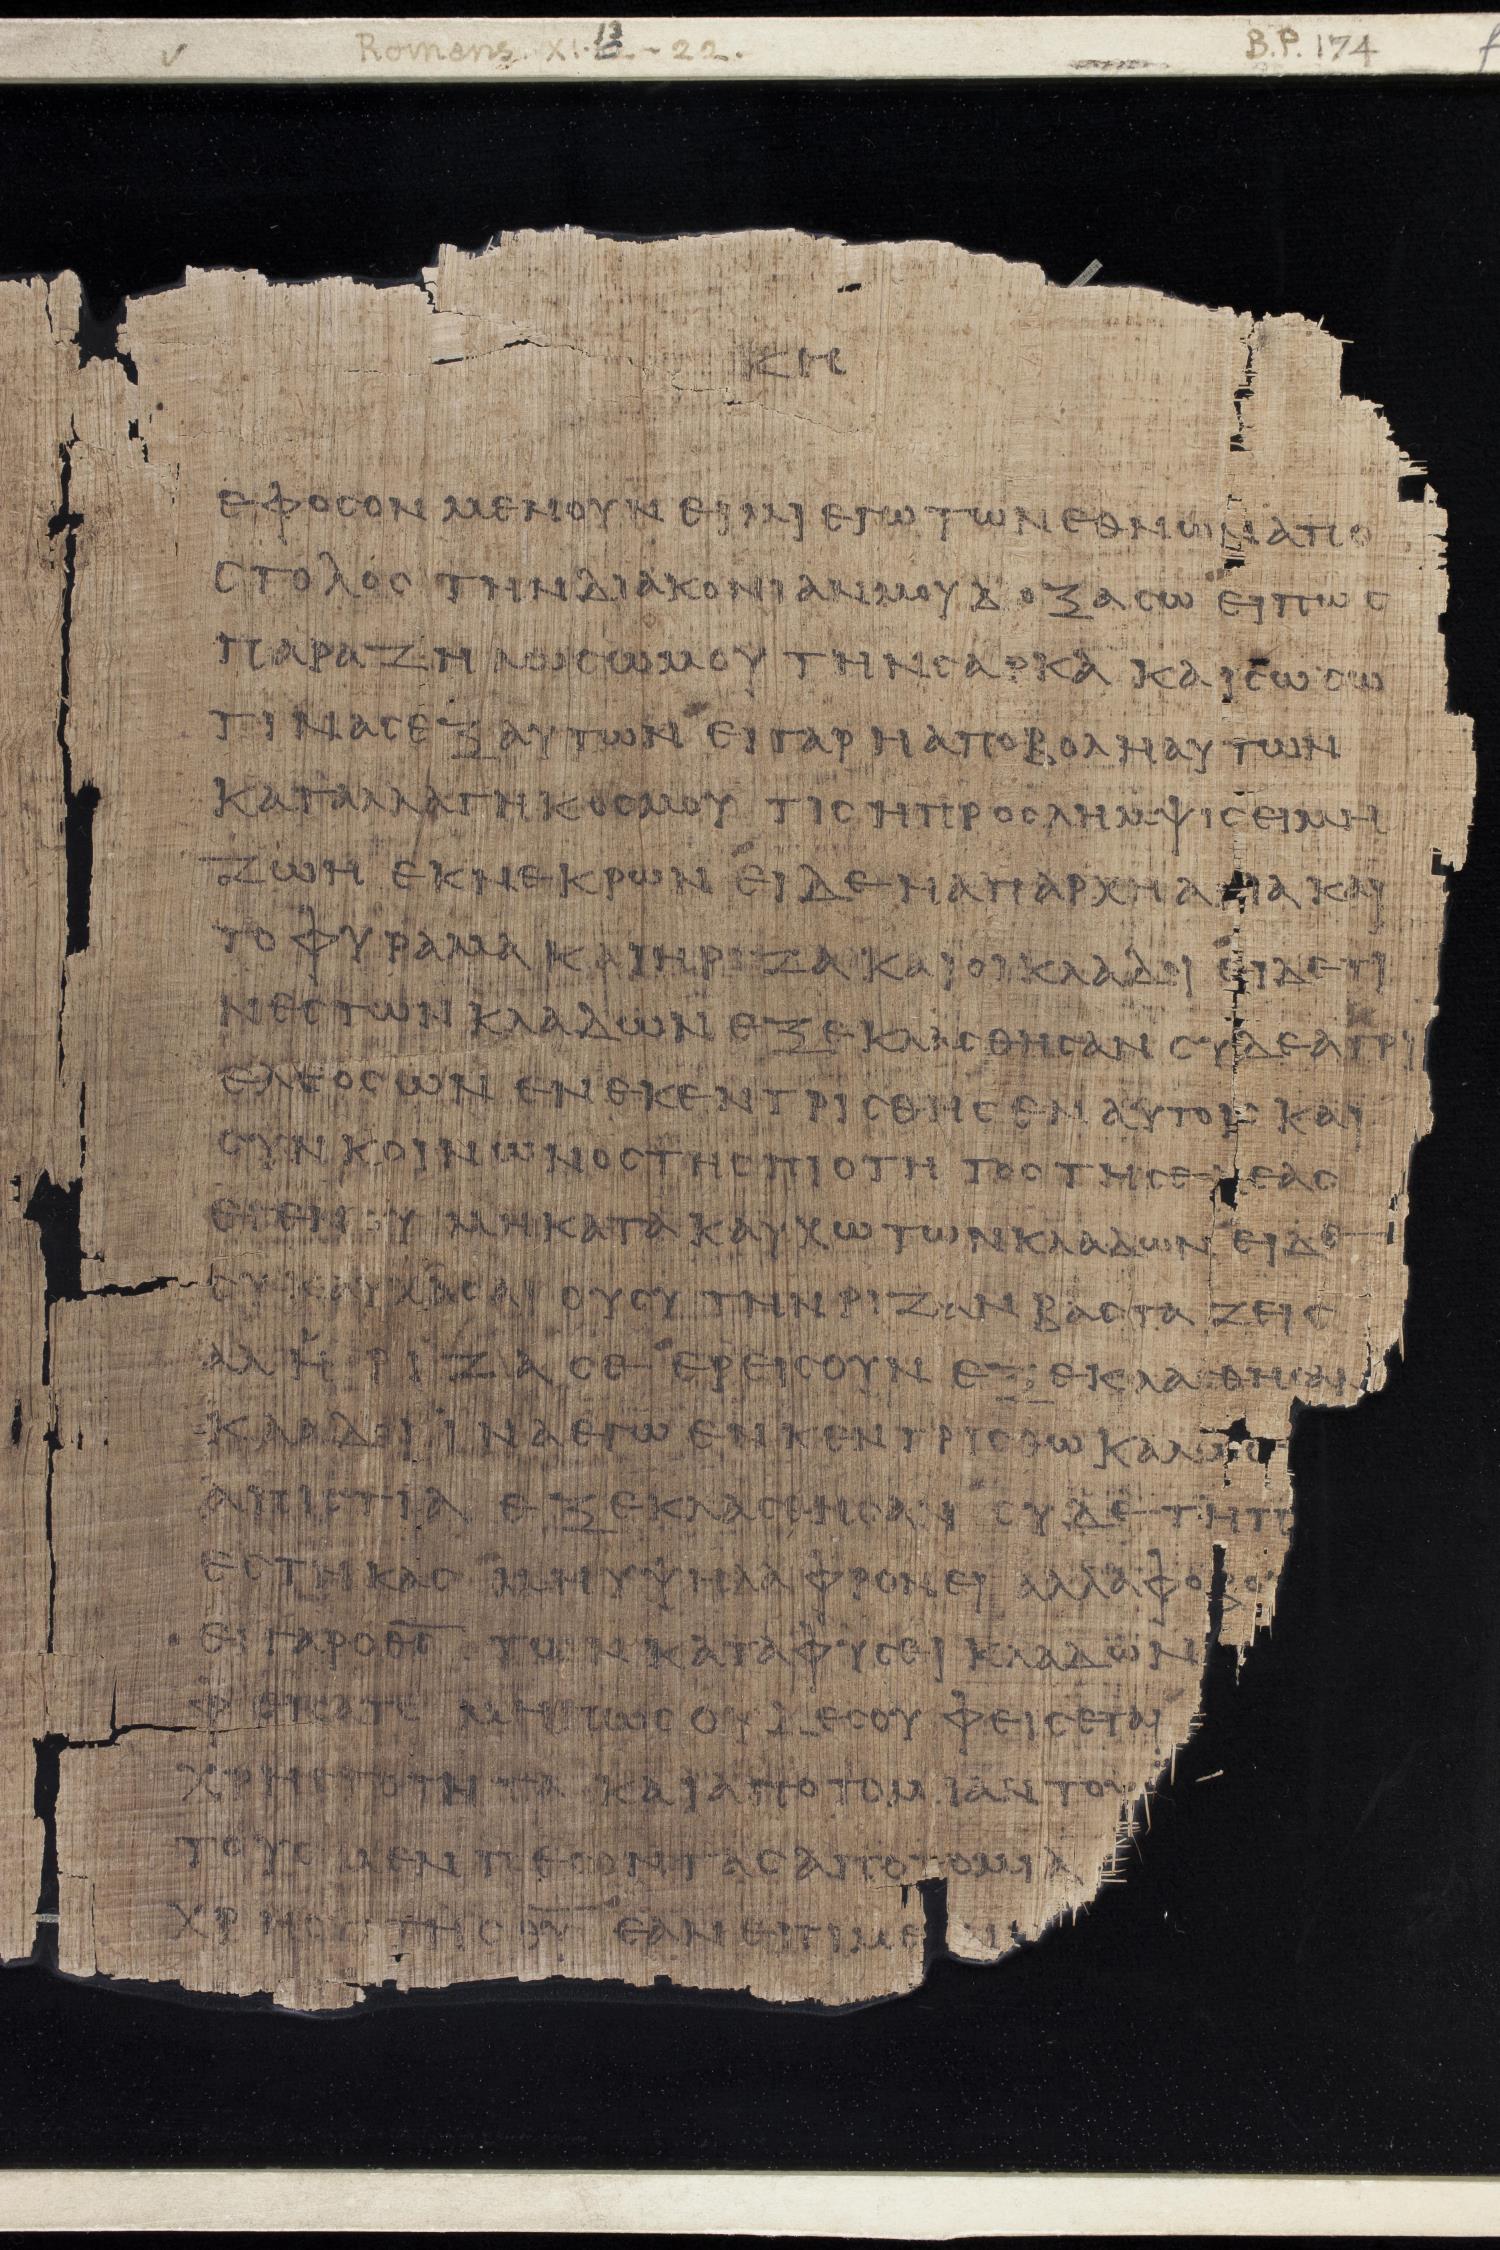 Romans XI. 13 - 22. B.P. 174
ΚΗ
ΕΦΟΣΟΝ ΜΕΝΟΥΝ ΕΙΜΙ ΕΓΩ ΤΩΝ ΕΘΝΩΝ ΑΠΟ
ΣΤΟΛΟΣ ΤΗΝ ΔΙΑΚΟΝΙΑΝ ΜΟΥ ΔΟΞΑΣΩ ΕΙ ΠΩΣ
ΠΑΡΑΖΗΛΩΣΩ ΜΟΥ ΤΗΝ ΣΑΡΚΑ ΚΑΙ ΣΩΣΩ
ΤΙΝΑΣ ΕΞ ΑΥΤΩΝ ΕΙ ΓΑΡ Η ΑΠΟΒΟΛΗ ΑΥΤΩΝ
ΚΑΤΑΛΛΑΓΗ ΚΟΣΜΟΥ ΤΙΣ Η ΠΡΟΣΛΗΜΨΙΣ ΕΙ ΜΗ
ΖΩΗ ΕΚ ΝΕΚΡΩΝ ΕΙ ΔΕ Η ΑΠΑΡΧΗ ΑΓΙΑ ΚΑΙ
ΤΟ ΦΥΡΑΜΑ ΚΑΙ Η ΡΙΖΑ ΚΑΙ ΟΙ ΚΛΑΔΟΙ ΕΙ ΔΕ ΤΙ
ΝΕΣ ΤΩΝ ΚΛΑΔΩΝ ΕΞΕΚΛΑΣΘΗΣΑΝ ΣΥ ΔΕ ΑΓΡΙ
ΕΛΕΟΣ ΩΝ ΕΝΕΚΕΝΤΡΙΣΘΗΣ ΕΝ ΑΥΤΟΙΣ ΚΑΙ
ΣΥΝΚΟΙΝΩΝΟΣ ΤΗΣ ΠΙΟΤΗΤΟΣ ΤΗΣ ΕΛΕΑΣ
ΕΓΕΝΟΥ ΜΗ ΚΑΤΑΚΑΥΧΩ ΤΩΝ ΚΛΑΔΩΝ ΕΙ ΔΕ
ΣΥ ΚΑΥΧΑΣΑΙ ΟΥ ΣΥ ΤΗΝ ΡΙΖΑΝ ΒΑΣΤΑΖΕΙΣ
ΑΛΛ Η ΡΙΖΑ ΣΕ ΕΡΕΙΣ ΟΥΝ ΕΞΕΚΛΑΣΘΗΣΑΝ
ΚΛΑΔΟΙ ΙΝΑ ΕΓΩ ΕΝΚΕΝΤΡΙΣΘΩ ΚΑΛΩΣ
ΑΠΙΣΤΙΑ ΕΞΕΚΛΑΣΘΗΣΑΝ ΣΥ ΔΕ ΤΗ Π
ΕΣΤΗΚΑΣ ΜΗ ΥΨΗΛΑ ΦΡΟΝΕΙ ΑΛΛΑ ΦΟΒΟΥ
ΕΙ ΓΑΡ Ο ΘΣ ΤΩΝ ΚΑΤΑ ΦΥΣΕΙ ΚΛΑΔΩΝ
ΦΕΙΣΑΤΟ ΜΗ ΠΩΣ ΟΥΔΕ ΣΟΥ ΦΕΙΣΕΤΑΙ
ΧΡΗΣΤΟΤΗΤΑ ΚΑΙ ΑΠΟΤΟΜΙΑΝ ΤΟΥ
ΤΟΥΣ ΜΕΝ ΠΕΣΟΝΤΑΣ ΑΠΟΤΟΜΙΑ
ΧΡΗΣΤΟΤΗΣ ΘΥ ΕΑΝ ΕΠΙΜΕ